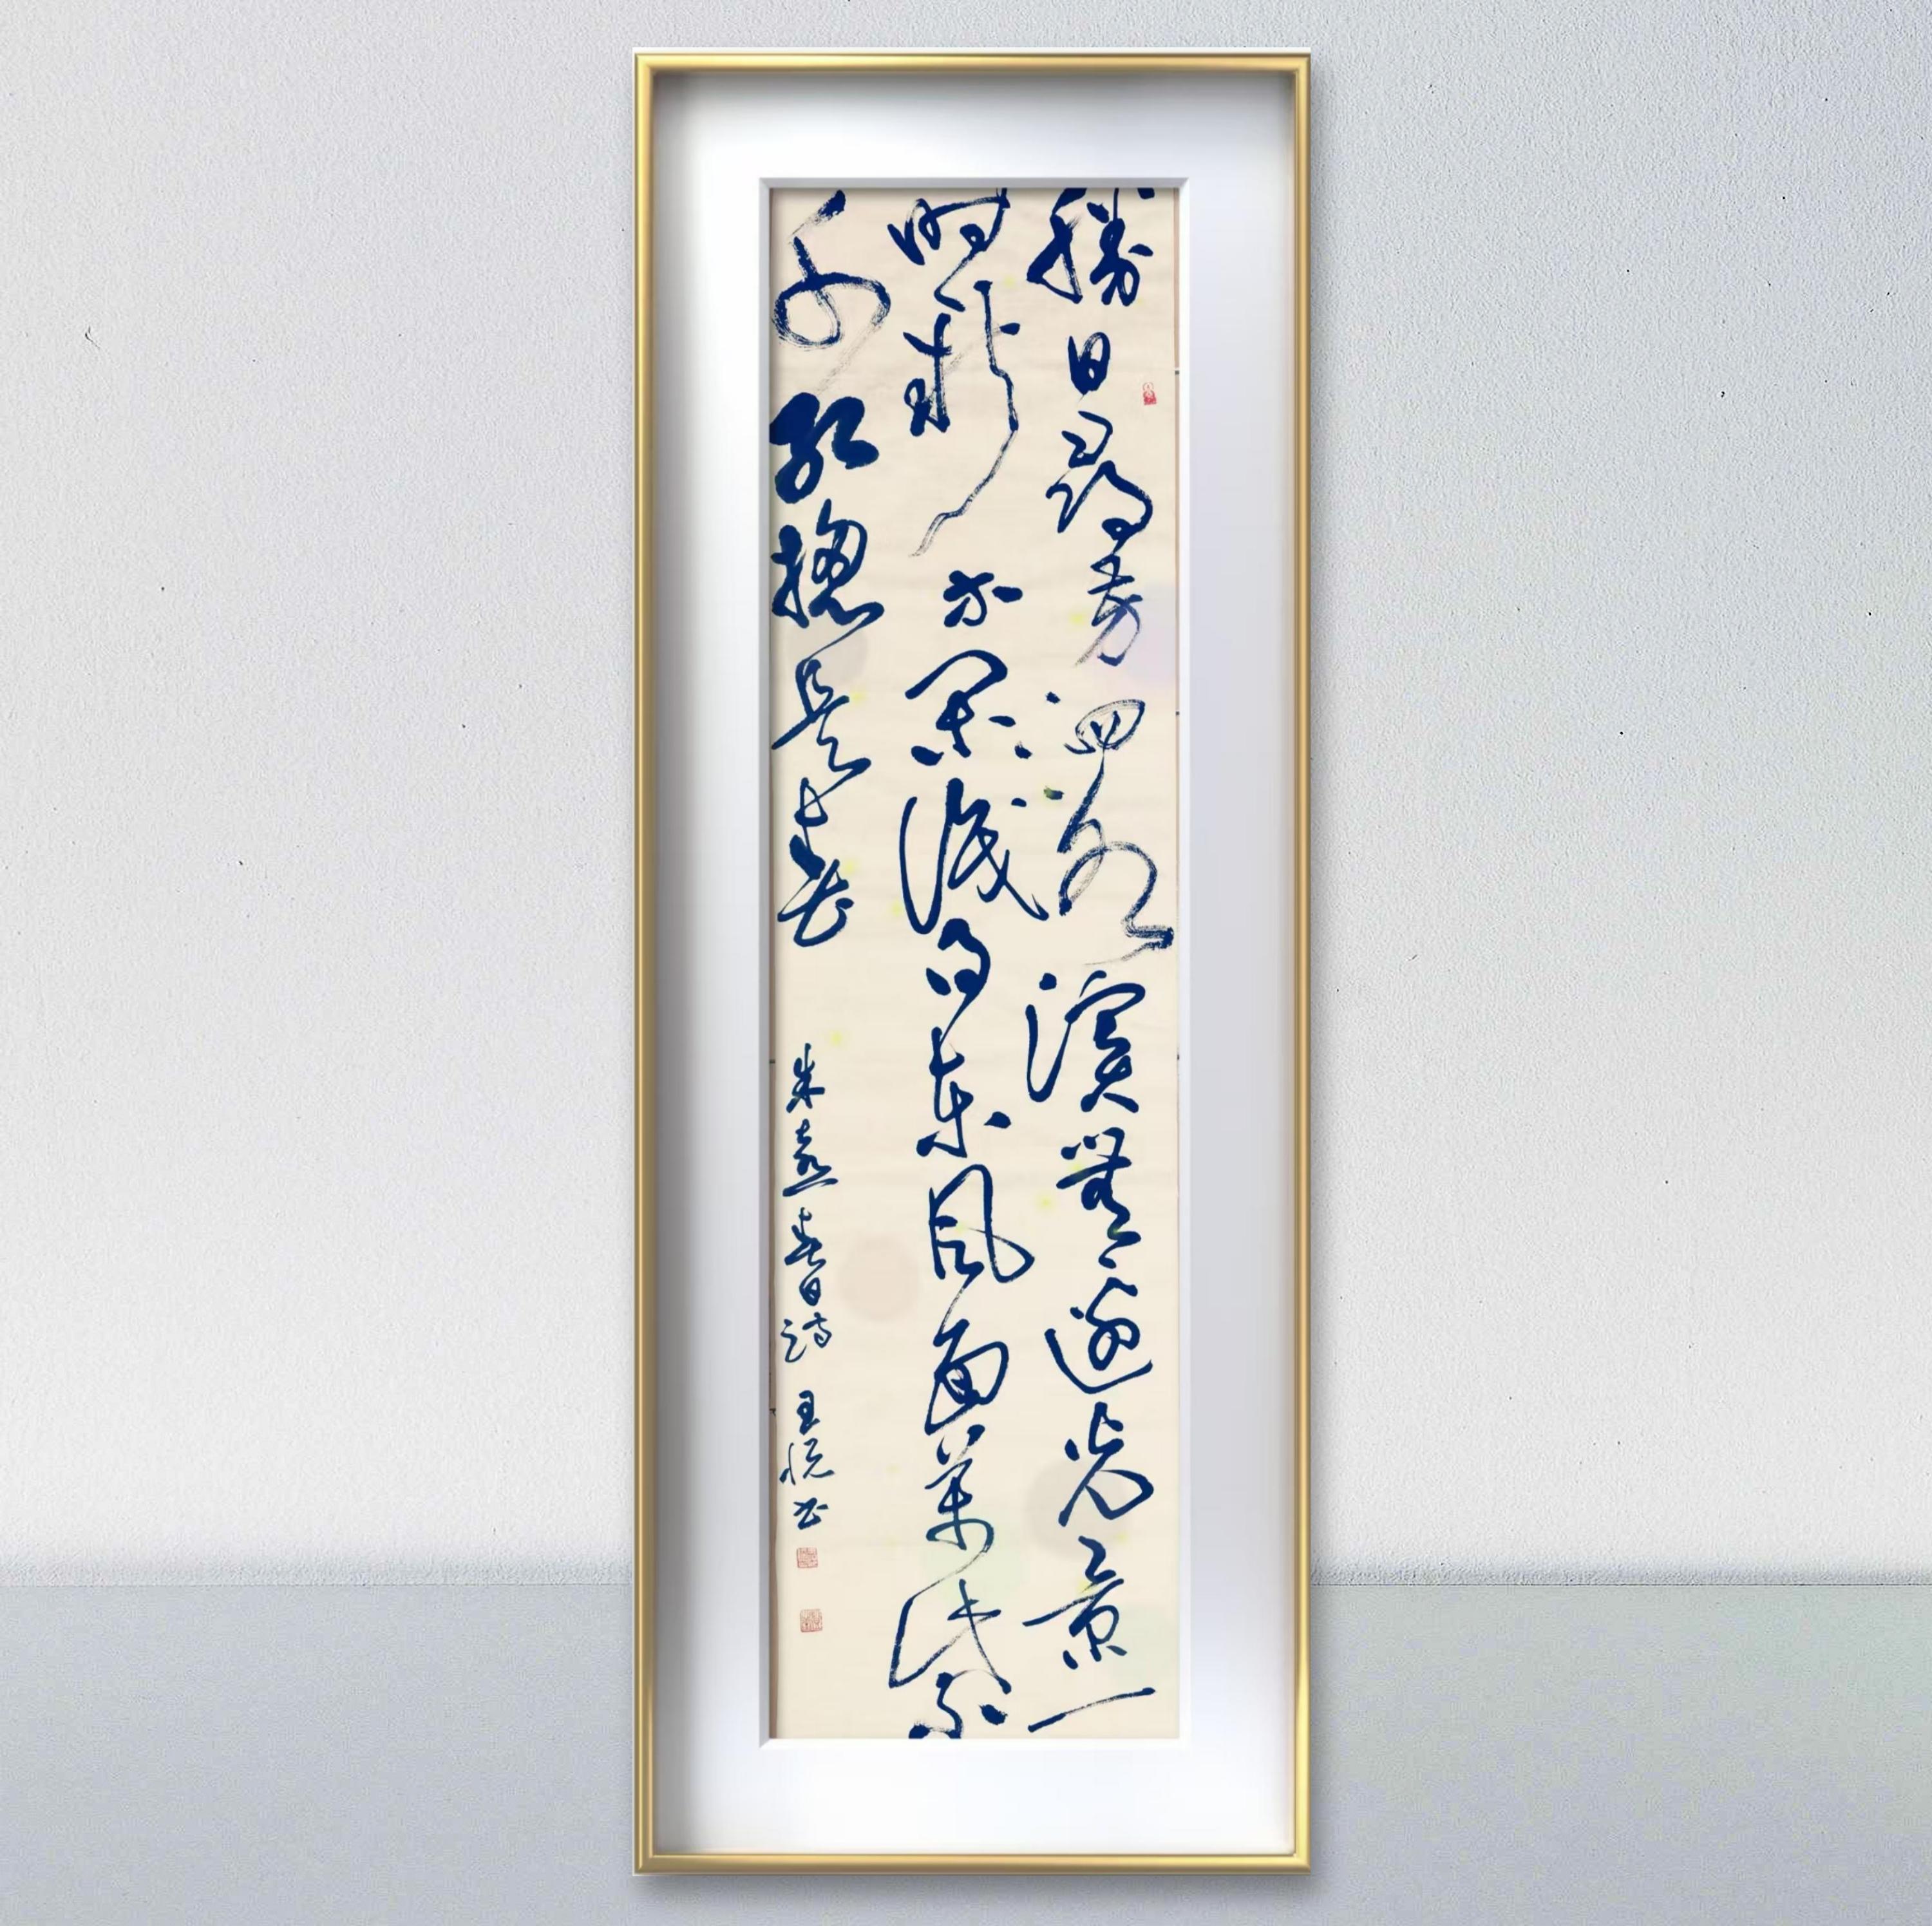 勝日尋芳泗水濱無邊光景一
時新等閑識得東風面萬紫
千紅總是春
朱熹春日詩 王悅書